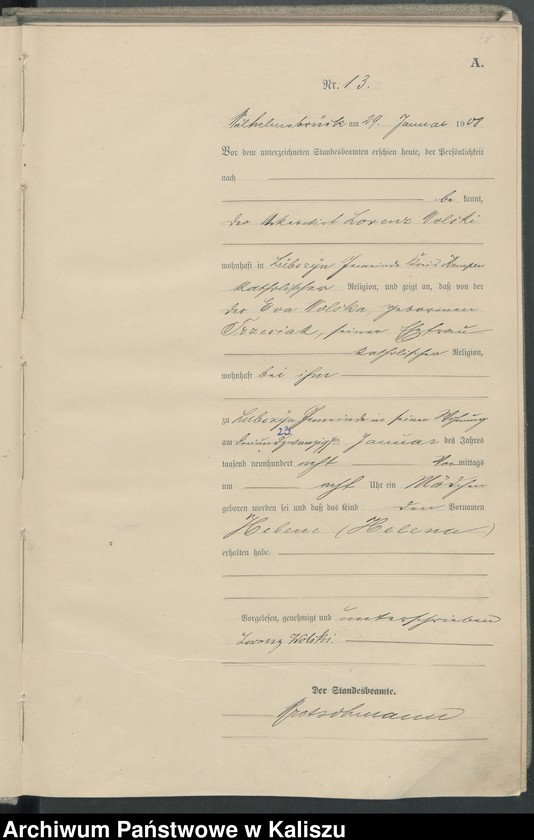 A.
Nr. 13.
Wilhelmsbrück am 29. Januar 1908
Vor dem unterzeichneten Standesbeamten erschien heute, der Persönlichkeit
nach
be kannt,
der Lorenz Wolski
wohnhaft in Lubczyn Gemeinde Kreis Kempen
katholischer Religion, und zeigt an, daß von der
der Eva Wolska, geborenen
Trzeciak, seiner Ehefrau
katholischer Religion,
wohnhaft bei ihm
zu Lubczyn Gemeinde in seiner Wohnung
am dreiundzwanzigsten Januar des Jahres
23.
tausend neunhundert acht Vor mittags
um acht Uhr ein Mädchen
geboren worden sei und daß das Kind den Vornamen
Helene (Helena)
erhalten habe.
Vorgelesen, genehmigt und unterschrieben
Lorenz Wolski.
Der Standesbeamte.
Archiwum Państwowe w Kaliszu